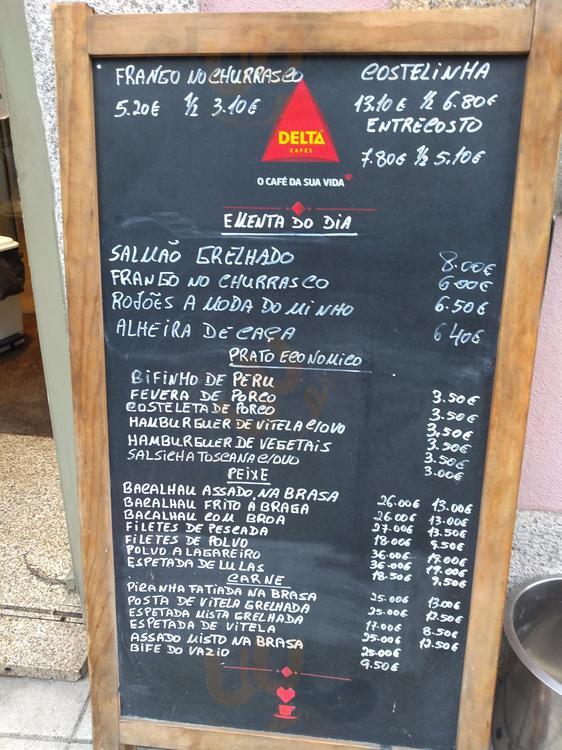 FRANGO NO CHURRASCO
5.20€ ½ 3.10€
COSTELINHA
13.10€ ½ 6.80€
ENTRECOSTO
7.80€ ½ 5.10€
DELTA
CAFÉS
O CAFÉ DA SUA VIDA
EMENTA DO DIA
SALMÃO GRELHADO 8.00€
FRANGO NO CHURRASCO 6.00€
ROJÕES A MODA DO MINHO 6.50€
ALHEIRA DE CAÇA 6.40€
PRATO ECONOMICO
BIFINHO DE PERU 3.50€
FEVERA DE PORCO 3.50€
COSTELETA DE PORCO 3.50€
HAMBURGUER DE VITELA C/OVO 3.50€
HAMBURGUER DE VEGETAIS 3.50€
SALSICHA TOSCANA C/OVO 3.00€
PEIXE
BACALHAU ASSADO NA BRASA 26.00€ 13.00€
BACALHAU FRITO À BRAGA 26.00€ 13.00€
BACALHAU COM BROA 27.00€ 13.50€
FILETES DE PESCADA 18.00€ 9.50€
FILETES DE POLVO 36.00€ 19.00€
POLVO A LAGAREIRO 36.00€ 19.00€
ESPETADA DE LULAS 18.50€ 9.50€
CARNE
PICANHA FATIADA NA BRASA 25.00€ 13.00€
POSTA DE VITELA GRELHADA 25.00€ 12.50€
ESPETADA MISTA GRELHADA 17.00€ 8.50€
ESPETADA DE VITELA 25.00€ 12.50€
ASSADO MISTO NA BRASA 25.00€
BIFE DO VAZIO 9.50€